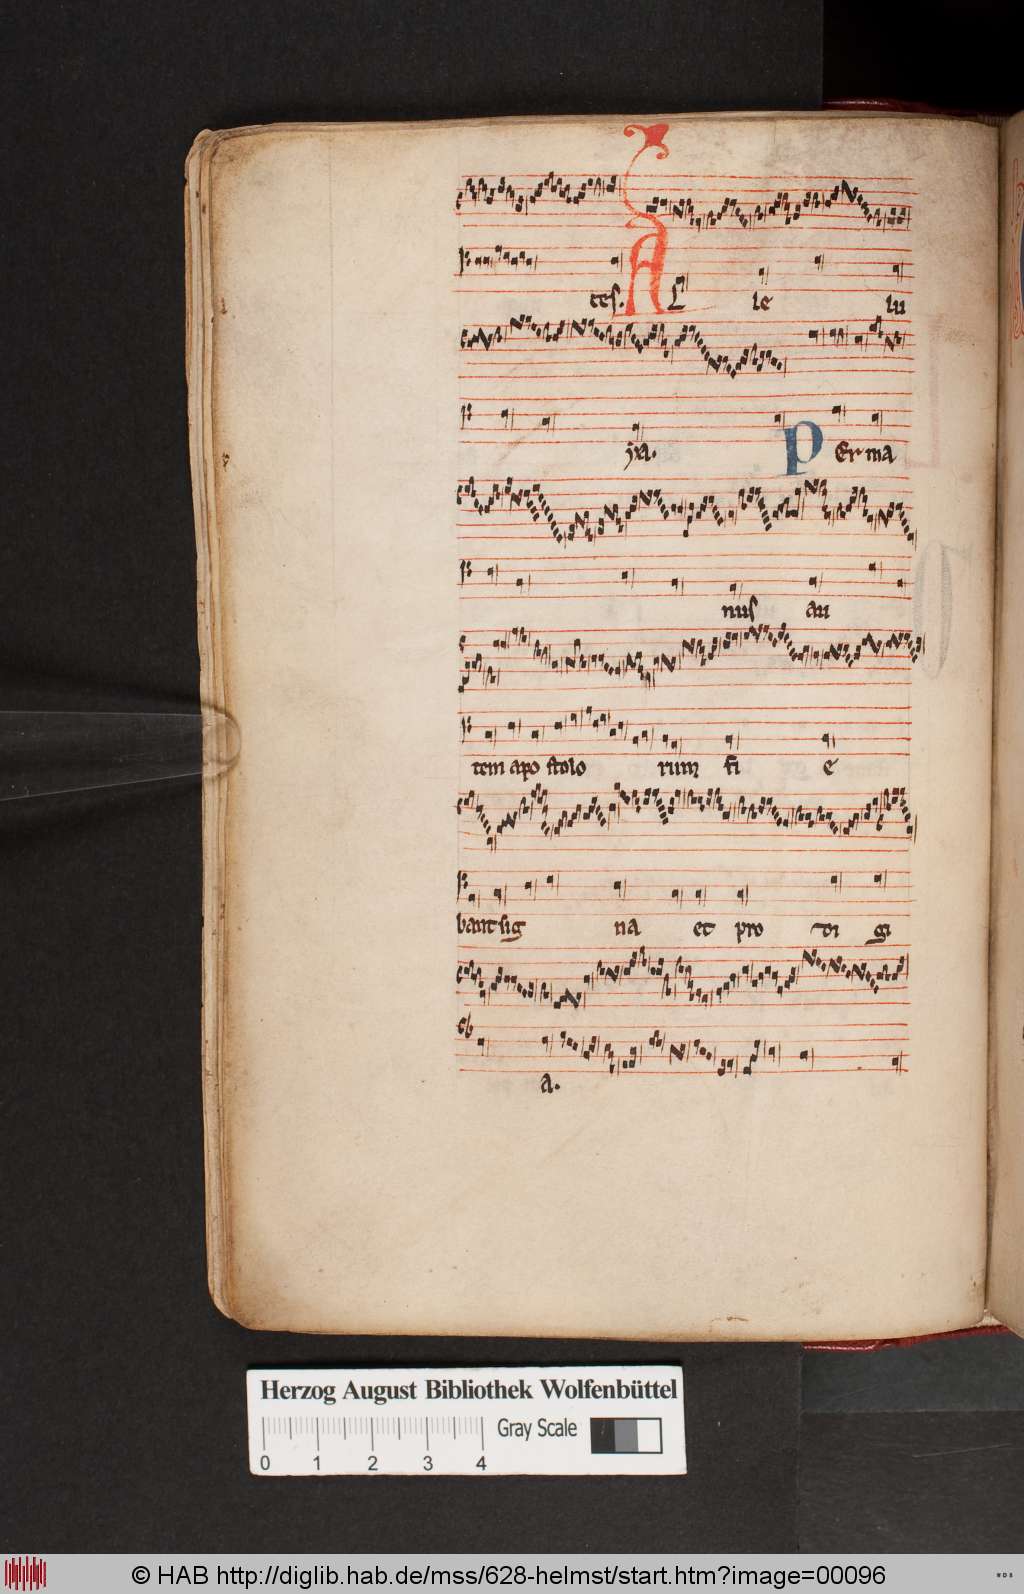 tes. AL le lu
ya. P Er ma
nus au
tem apo stolo rum fi e
bant sig na et pro di gi
a.
Herzog August Bibliothek Wolfenbüttel
Gray Scale
0 1 2 3 4
© HAB http://diglib.hab.de/mss/628-helmst/start.htm?image=00096